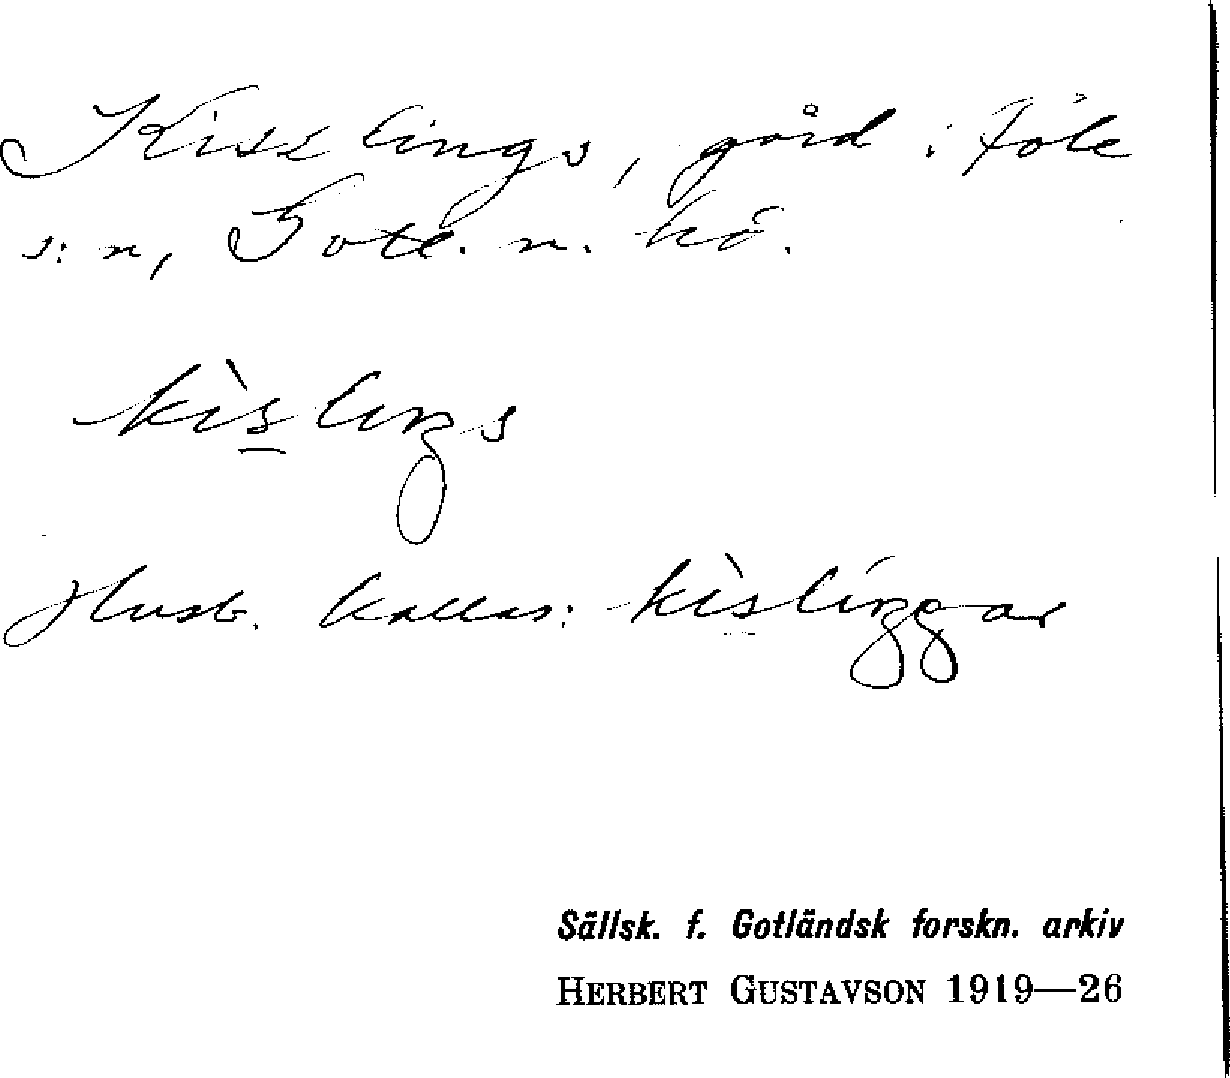 Kisslings, gård i Fole
s:n, Gotl. n. hd.
kìslıŋs
Husb. kallas: kìslíŋgar
Sällsk. f. Gotländsk forskn. arkiv
HERBERT GUSTAVSON 1919—26